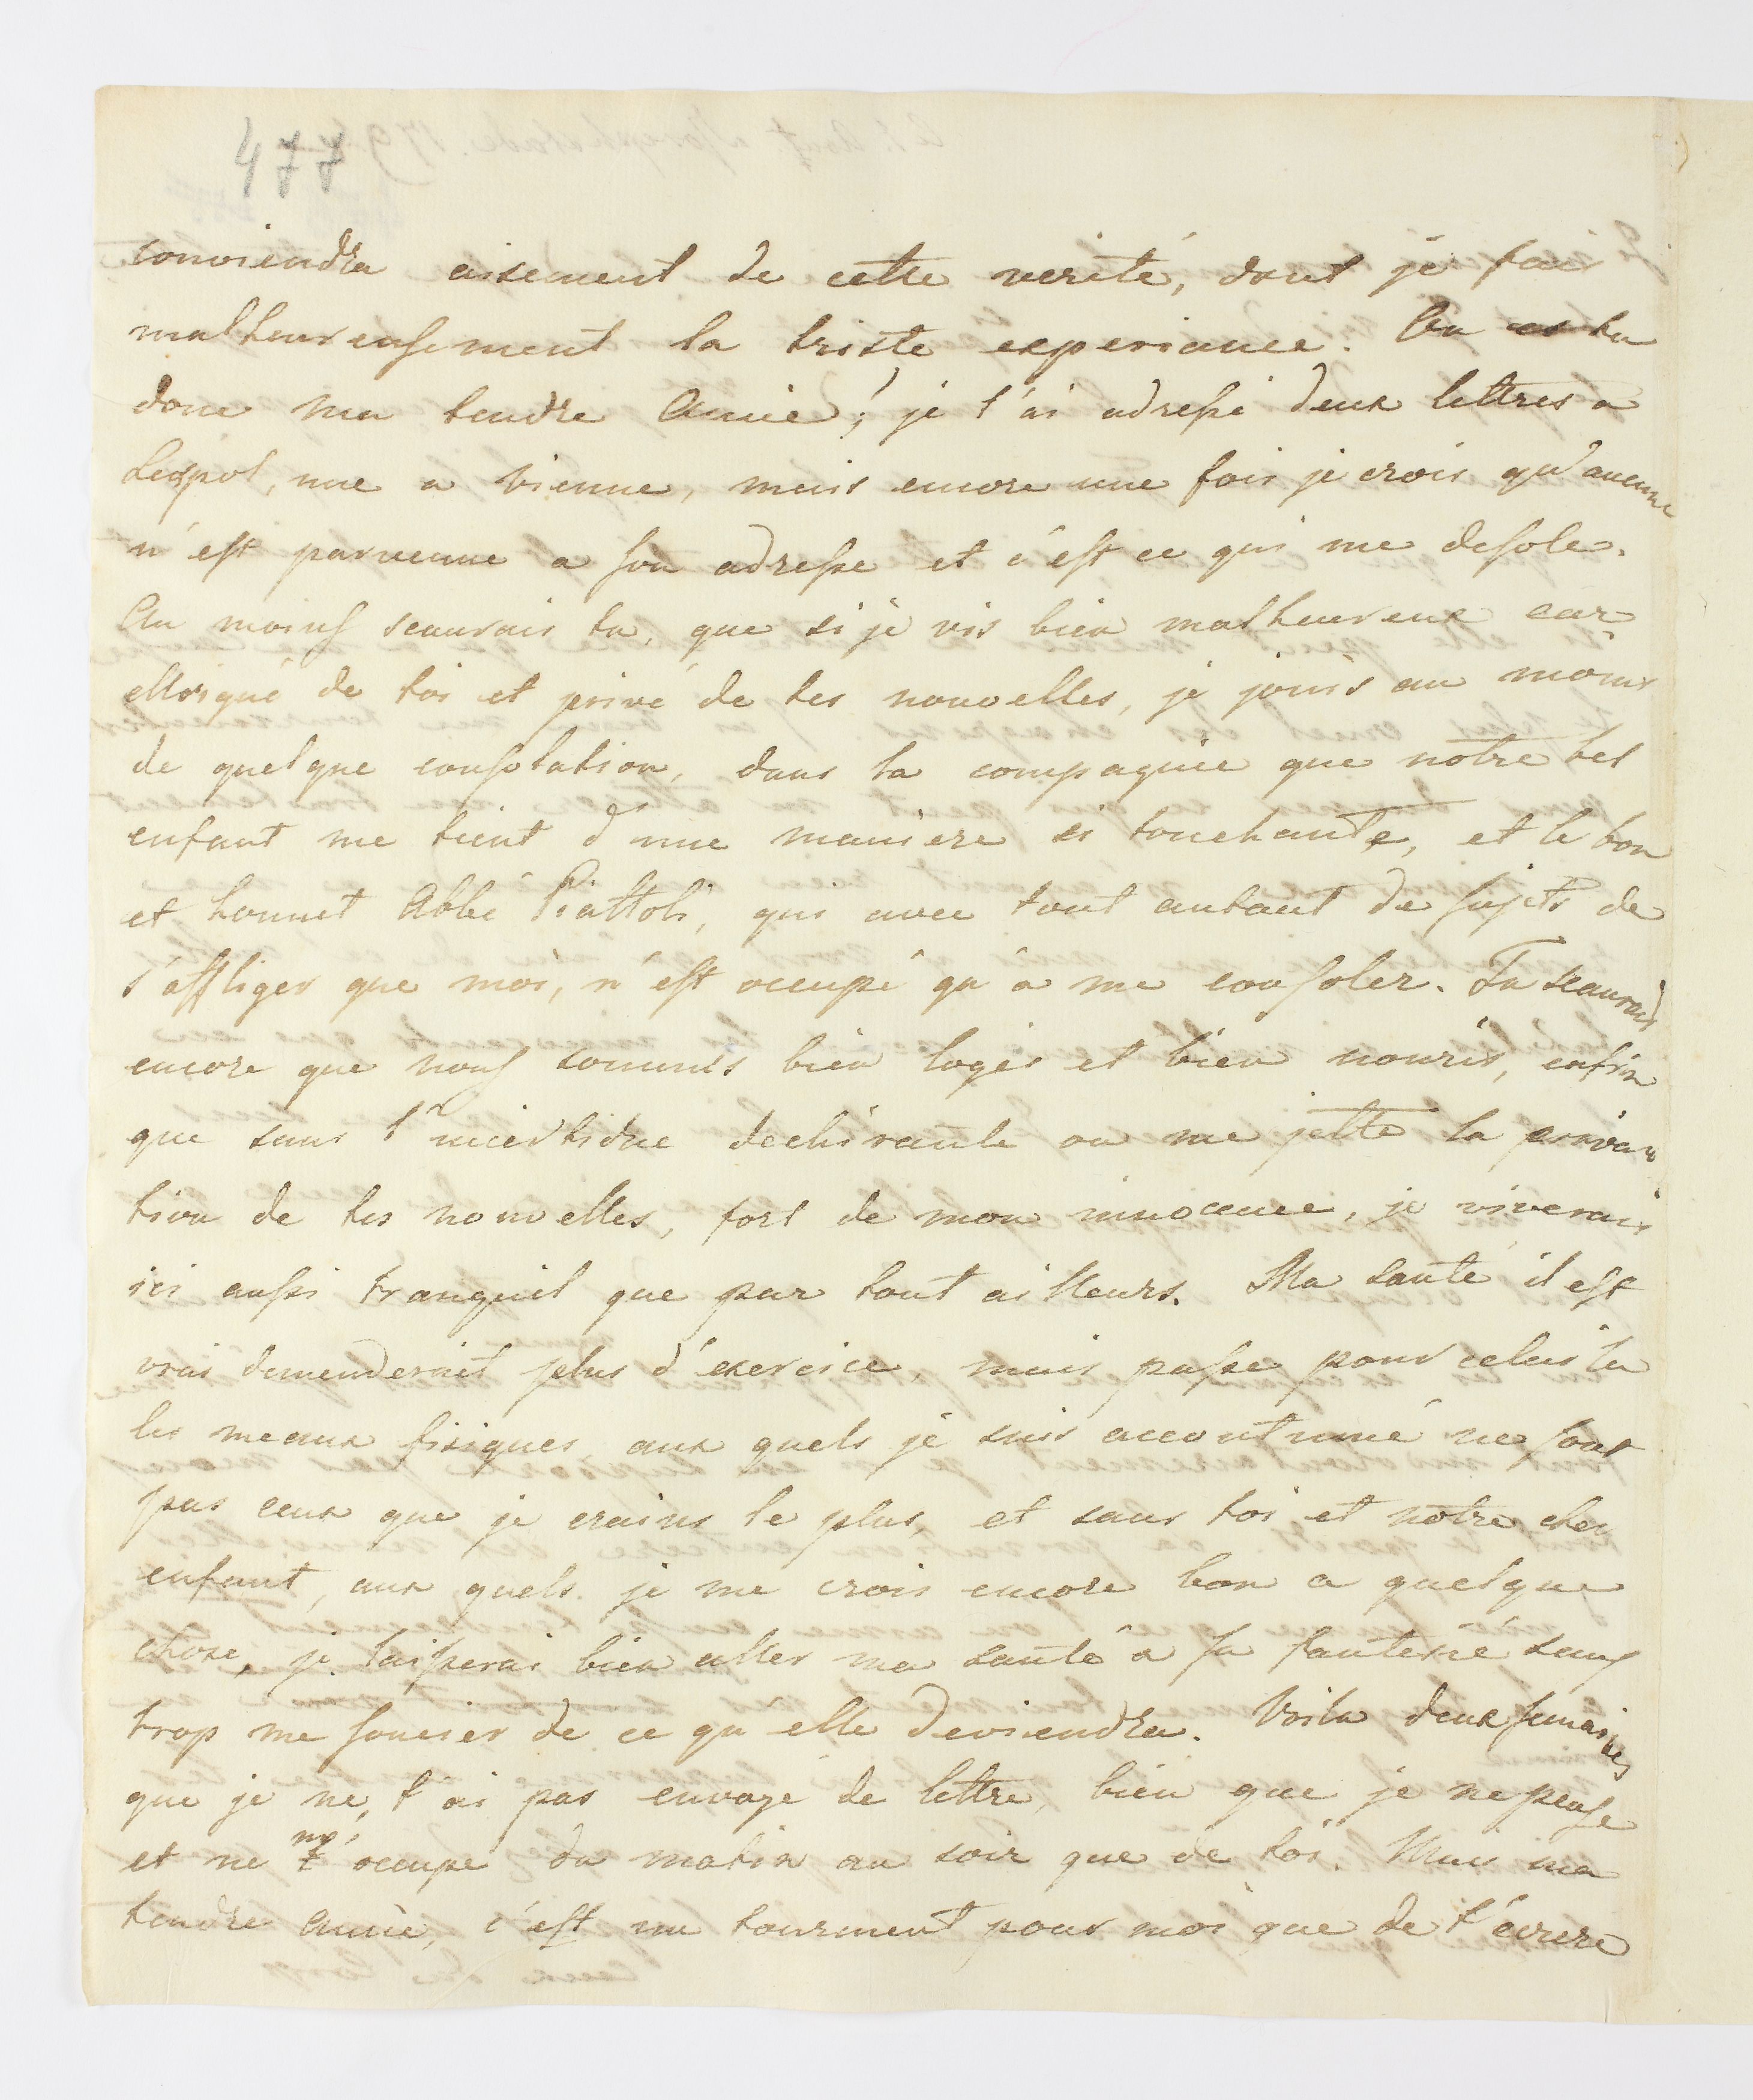 477
conviendra aisement de cette verité, dont je fais
malheureusement la triste experiance. Ou es tu
donc ma tendre Amie! je t'ai adressé deux lettres a
Leopol, une a Vienne, mais encore une fois je crois qu'aucune
n'est parvenue a son adresse et c'est ce qui me desole.
Au moins scaurais tu, que si je vis bien malheureux car
elloigné de toi et privé de tes nouvelles, je jouis au moins
de quelque consolation, dans la compagnie que notre bel
enfant me tient d'une maniere si touchante, et le bon
et honnet Abbé Piattoli, qui avec tout autant de sujets de
s'affliger que moi, n'est occupé qu'a me consoler. Tu scaurais
encore que nous sommes bien logés et bien nouris, enfin
que sans l'incertidue dechirante ou me jette la priva
tion de tes nouvelles, fort de mon innocence, je viverais
ici aussi tranquil que par tout ailleurs. Ma santé il est
vrai demenderait plus d'exercice, mais passe pour celui la
les meaux fisiques aux quels je suis accoutumé ne sont
pas ceux que je crains le plus, et sans toi et notre cher
enfant, aux quels je me crois encore bon a quelque
chose, je laisserai bien aller ma santé a sa fantesie sans
trop me soucier de ce qu'elle deviendra. Voila deux semaines
que je ne t'ai pas envoyé de lettre, bien que je ne pense
et ne m'occupe du matin au soir que de toi. Mais ma
tendre amie, c'est un tourment pour moi que de t'ecrire